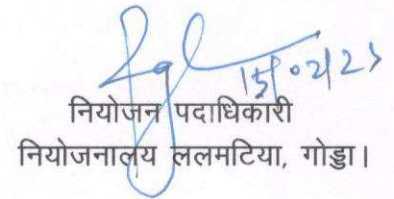 15/02/23
नियोजन पदाधिकारी
नियोजनालय ललमटिया, गोड्डा।